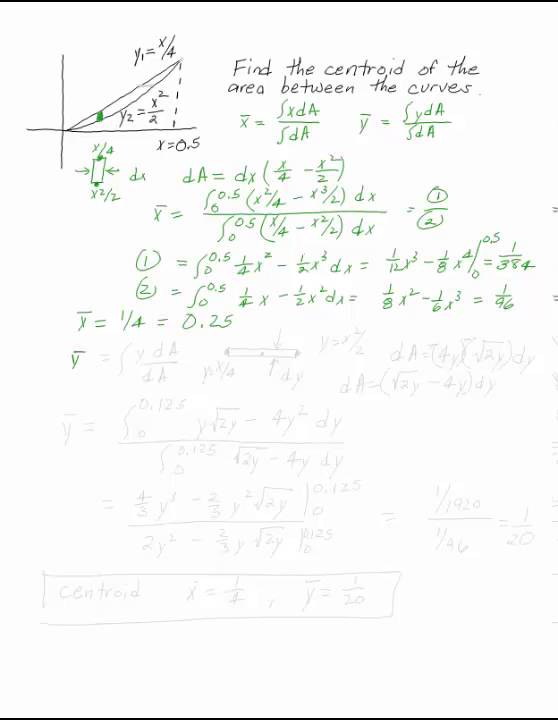 y₁ = x/4
Find the centroid of the
area between the curves.
y₂ = x²/2
x = 0.5
x̄ = ∫xdA/∫dA   ȳ = ∫ydA/∫dA
x/4
dx
x²/2
dA = dx (x/4 − x²/2)
x̄ = ∫₀^0.5 (x²/4 − x³/2) dx / ∫₀^0.5 (x/4 − x²/2) dx = ①/②
① = ∫₀^0.5 1/4 x² − 1/2 x³ dx = 1/12 x³ − 1/8 x⁴ |₀^0.5 = 1/384
② = ∫₀^0.5 1/4 x − 1/2 x² dx = 1/8 x² − 1/6 x³ = 1/96
x̄ = 1/4 = 0.25
ȳ = ∫ y dA / dA   y = x/4   dy   y = x²/2   dA = (4y)(√2y) dy
dA = (√2y − 4y) dy
ȳ = ∫₀^0.125 y√2y − 4y² dy / ∫₀^0.125 √2y − 4y dy
= 4/3 y³ − 2/3 y² √2y |₀^0.125 / 2y² − 2/3 y √2y |₀^0.125 = 1/1920 / 1/96 = 1/20
centroid x̄ = 1/4 , ȳ = 1/20